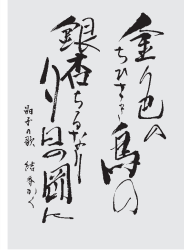 金色の
ちひさき鳥の
銀杏ちるなり
夕日の岡に
晶子の歌